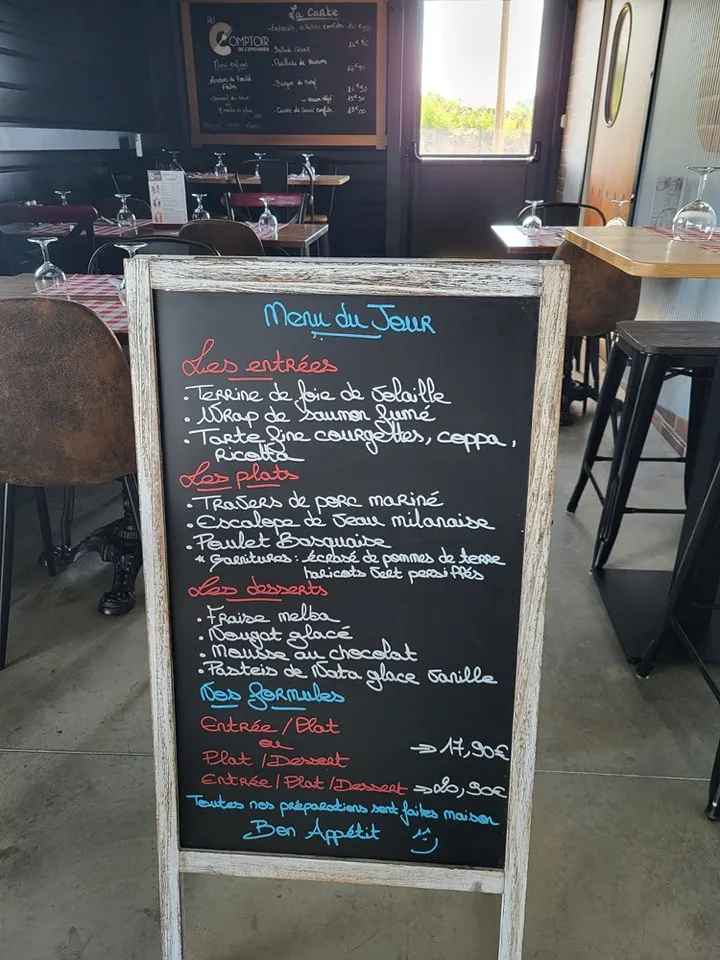 La Carte
AU
COMPTOIR
DE L'EPICURIEN
Menu enfant
Menu du Jour
Les entrées
• Terrine de foie de volaille
• Wrap de saumon fumé
• Tarte fine courgettes, coppa,
Ricotta
Les plats
• Travers de porc mariné
• Escalope de veau milanaise
• Poulet Basquaise
* Garnitures : écrasé de pommes de terre
haricots vert persiffés
Les desserts
• Fraise melba
• Nougat glacé
• Mousse au chocolat
• Pasteis de Nata glace vanille
Nos formules
Entrée / Plat
ou
→ 17,90€
Plat / Dessert
Entrée / Plat / Dessert → 20,90€
Toutes nos préparations sont faites maison
Bon Appétit